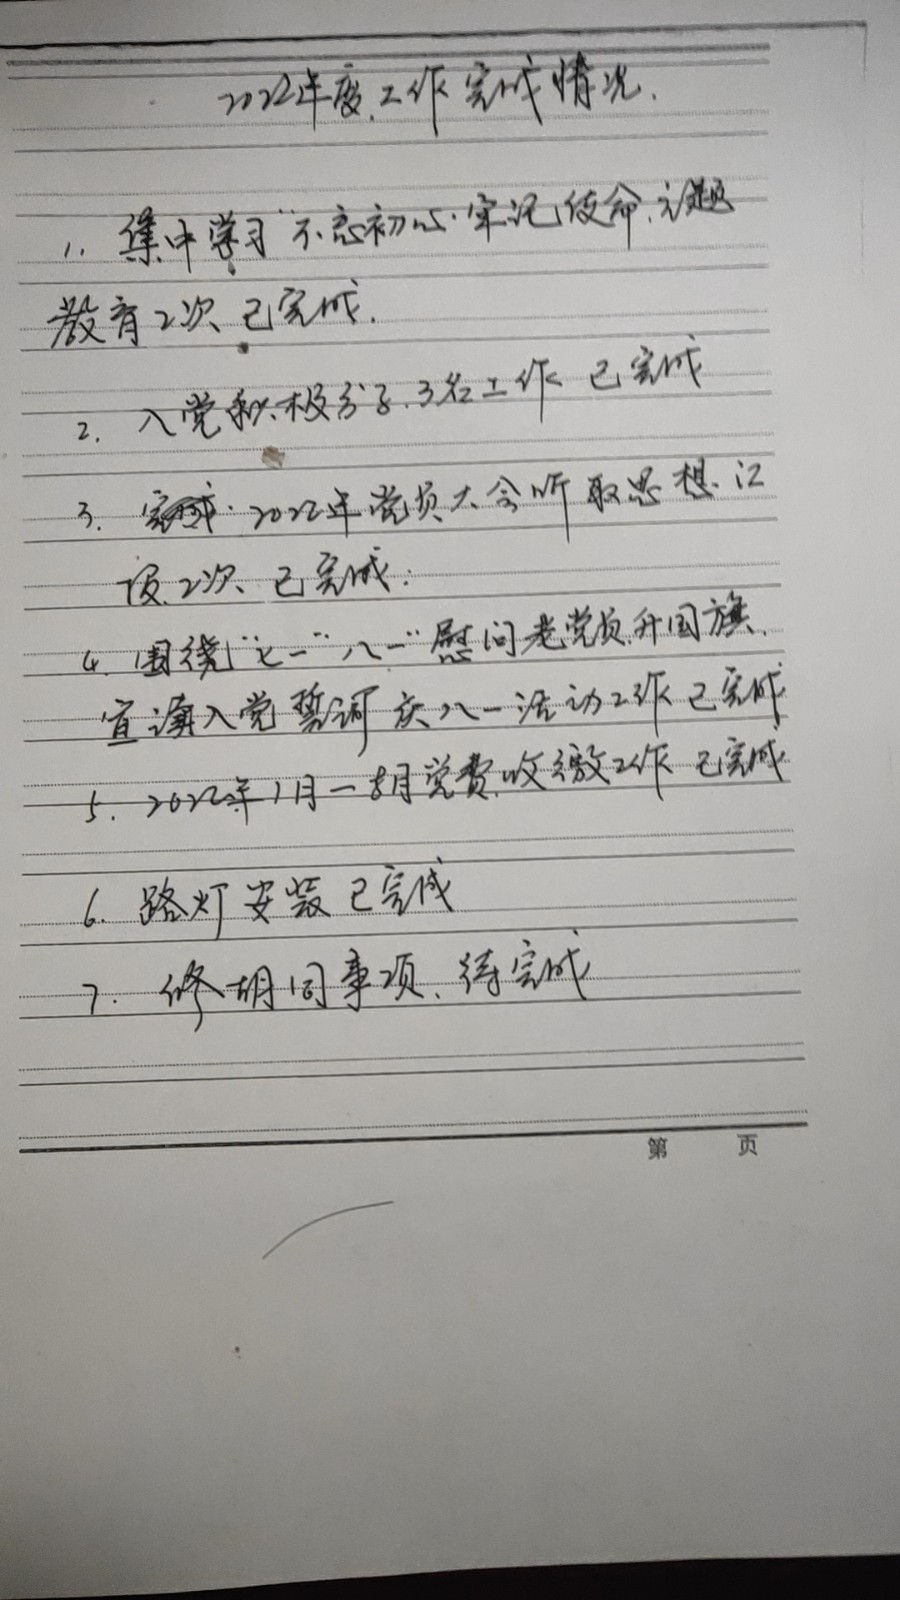 2022年度工作完成情况.
1. 集中学习"不忘初心.牢记使命.主题
教育2次、已完成.
2. 入党积极分子.3名工作 已完成
3. 完成.2022年党员大会听取思想.汇
报.2次、已完成.
4. 围绕"七一""八一"慰问老党员升国旗.
宣读入党誓词 庆八一活动工作 已完成
5. 2022年1月一8月党费.收缴工作 已完成
6. 路灯安装已完成
7. 修胡同事项、待完成
第 页